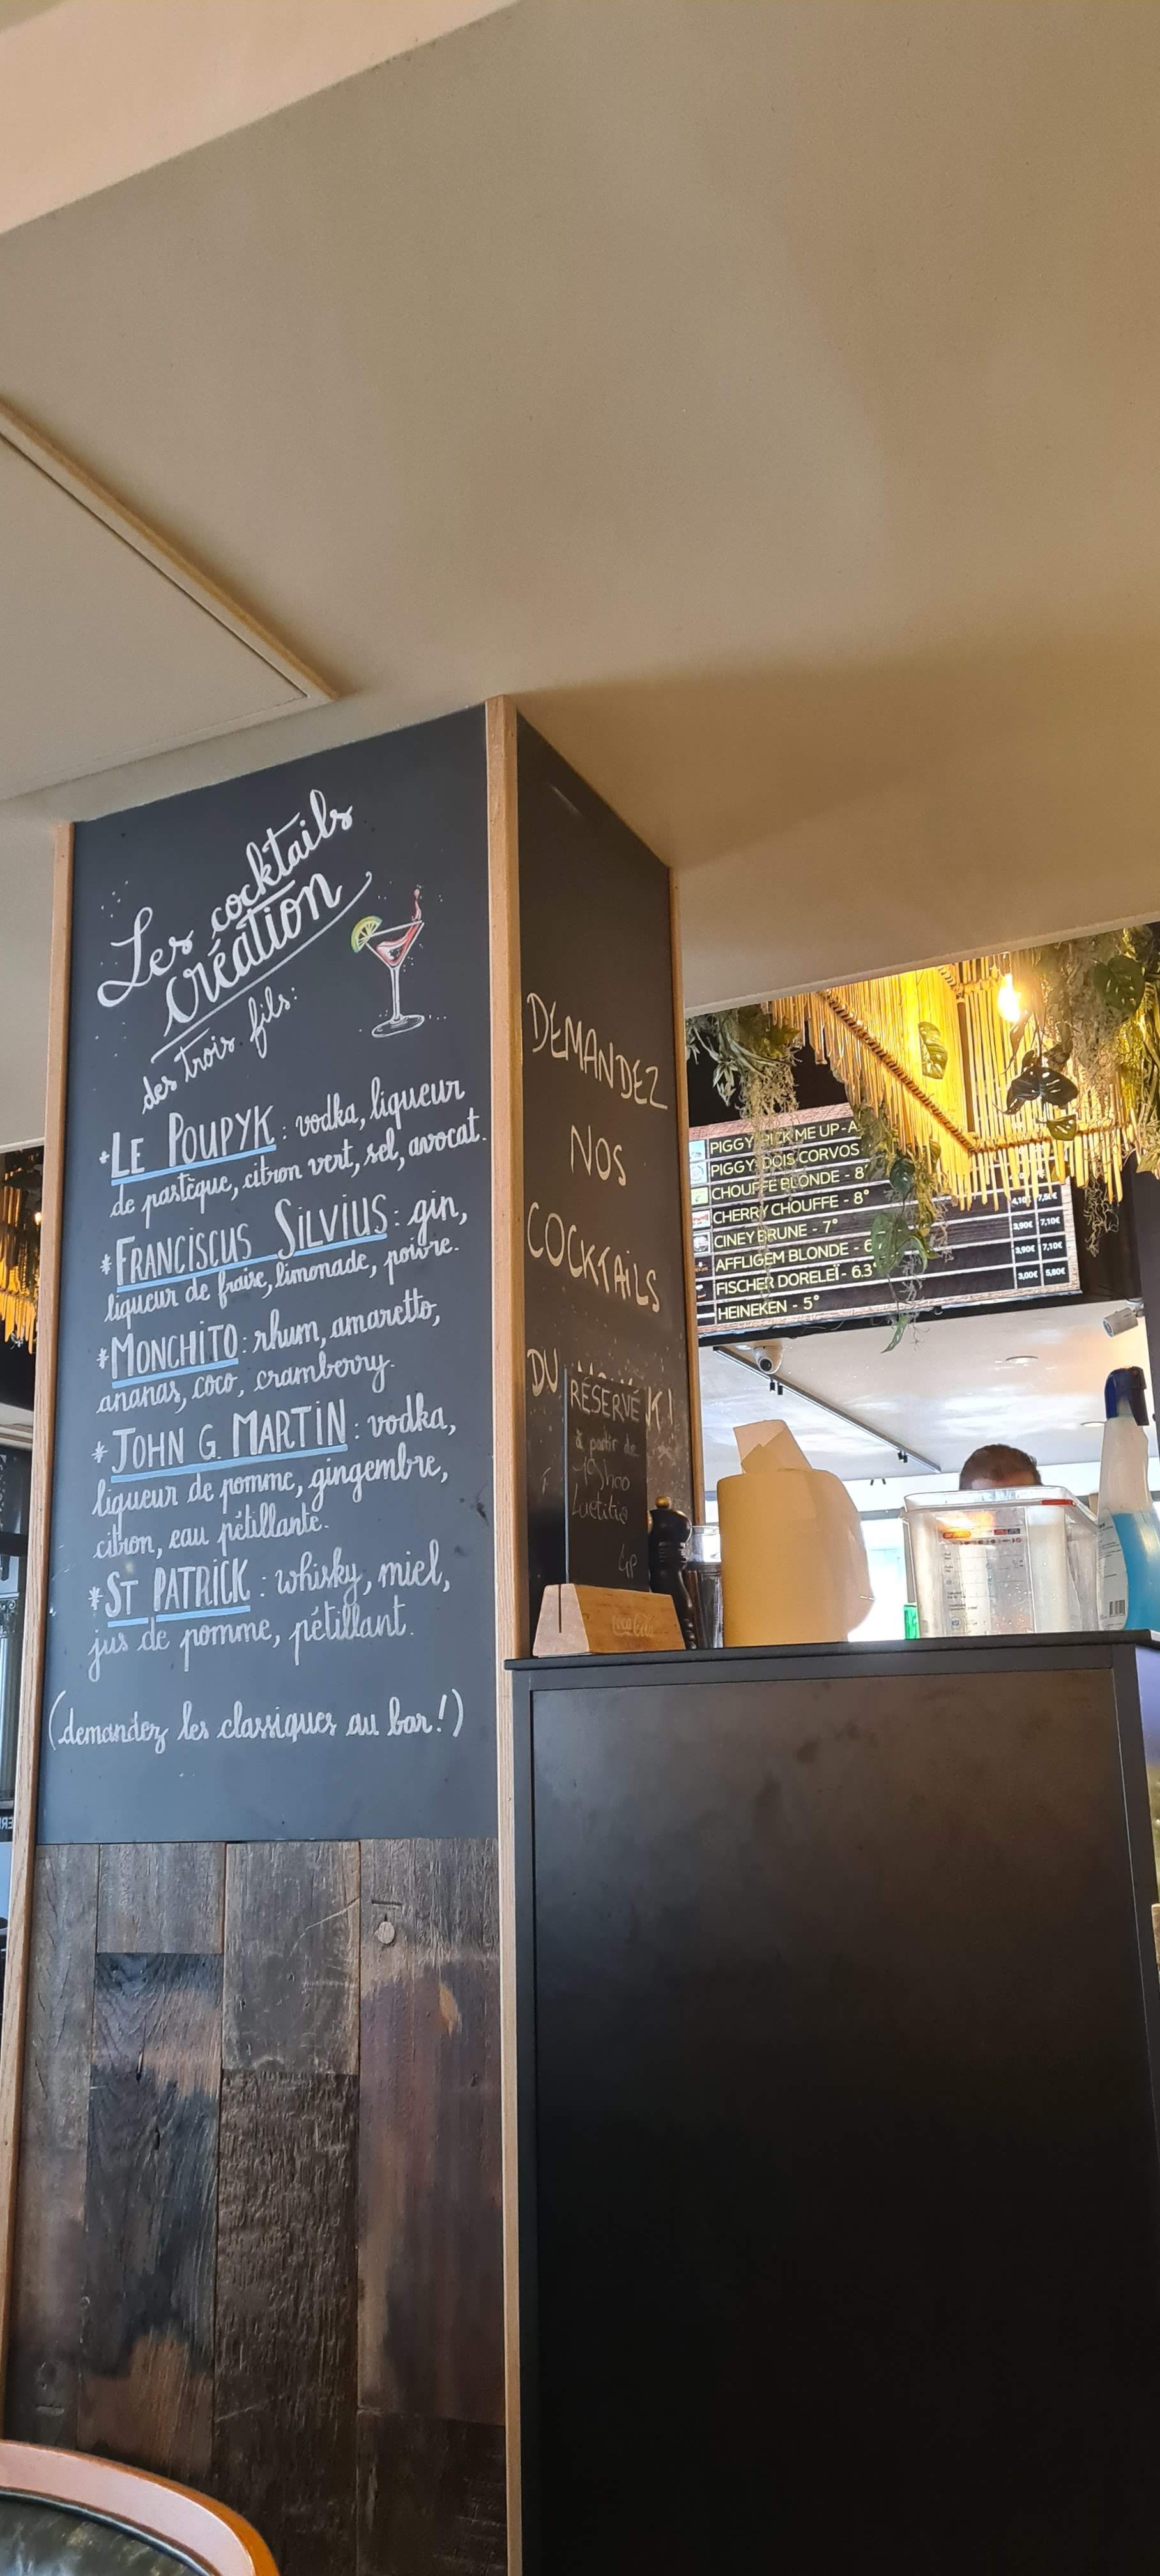 Les cocktails
création
des trois fils:
*LE POUPYK : vodka, liqueur
de pastèque, citron vert, sel, avocat.
*FRANCISCUS SILVIUS : gin,
liqueur de fraise, limonade, poivre.
*MONCHITO : rhum, amaretto,
ananas, coco, cramberry.
*JOHN G. MARTIN : vodka,
liqueur de pomme, gingembre,
citron, eau pétillante.
*ST PATRICK : whisky, miel,
jus de pomme, pétillant.
(demandez les classiques au bar!)
DEMANDEZ
NOS
COCKTAILS
DU
K!
RÉSERVÉ
à partir de
Laetitia
4P
Coca-Cola
PIGGY PICK ME UP - A
PIGGY DOIS CORVOS
CHOUFFE BLONDE - 8°
CHERRY CHOUFFE - 8°
CINEY BRUNE - 7° 4,10€ 7,50€
AFFLIGEM BLONDE - 6 3,90€ 7,10€
FISCHER DORELEÏ - 6.3° 3,90€ 7,10€
HEINEKEN - 5° 3,00€ 5,80€